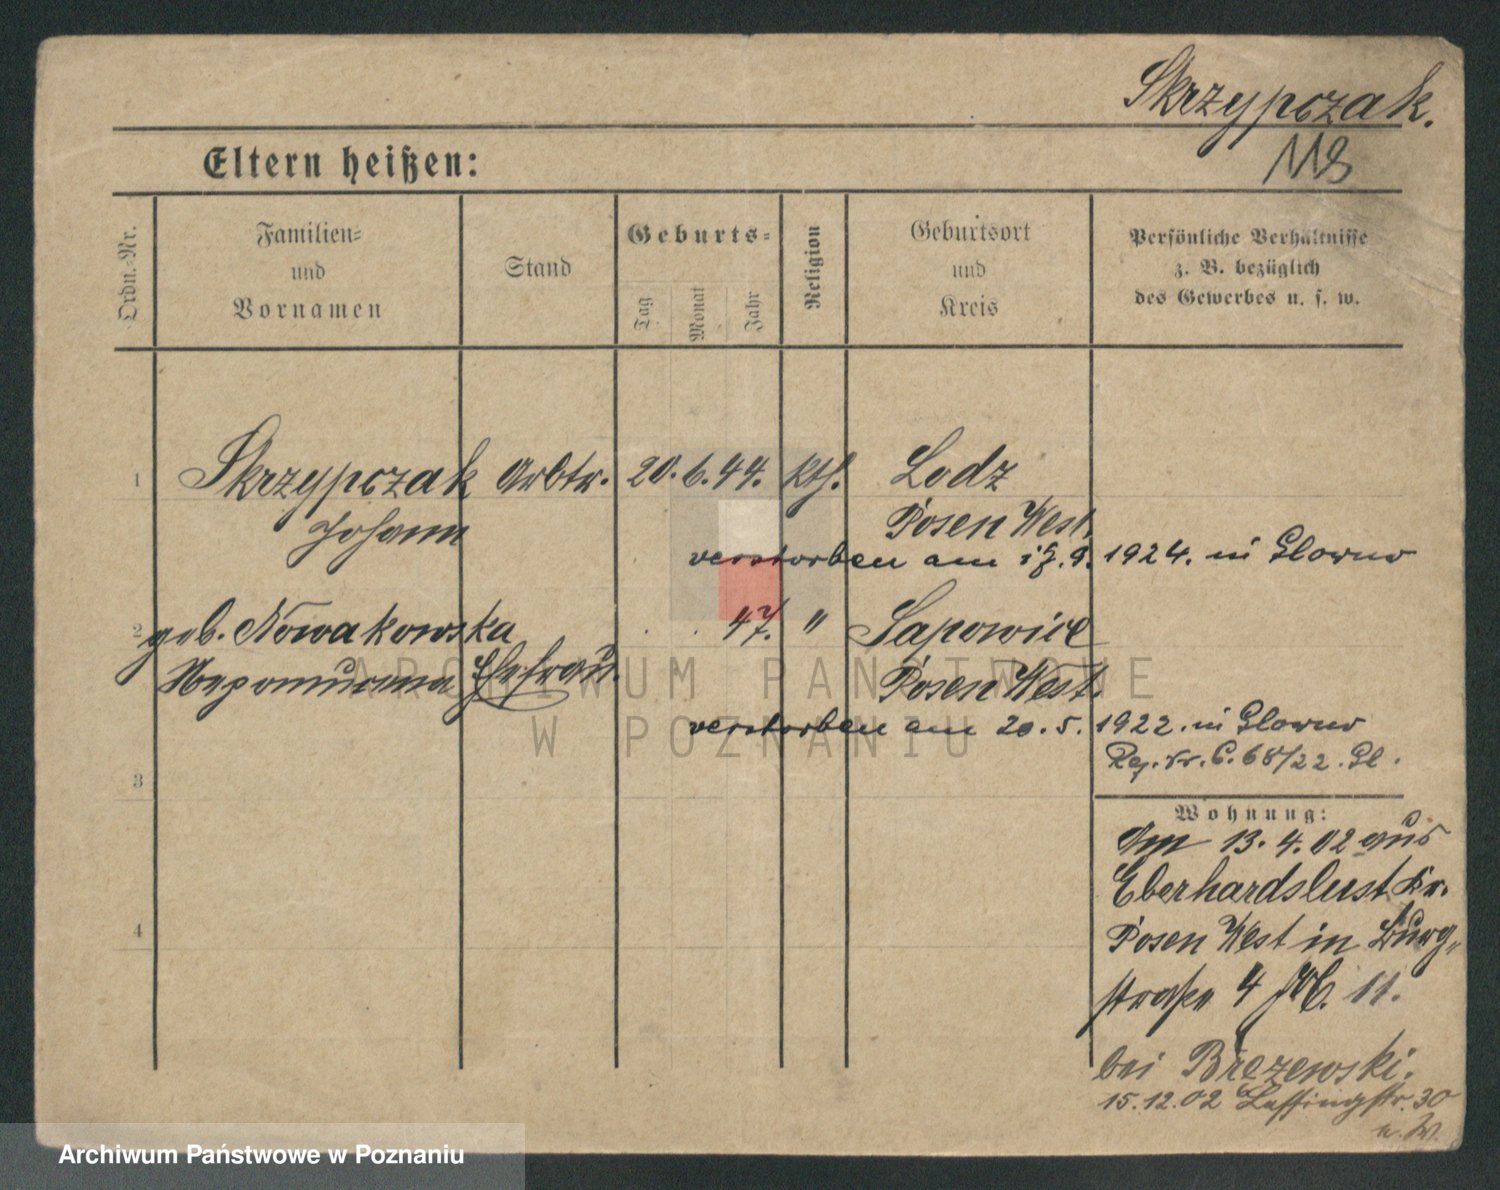 Skrzypczak.
118
Eltern heißen:
Ordn.-Nr.
Familien-
und
Vornamen
Stand
Geburts-
Tag
Monat
Jahr
Religion
Geburtsort
und
Kreis
Persönliche Verhältnisse
z. B. bezüglich
des Gewerbes u. s. w.
1 Skrzypczak Arbtr. 20. 6. 44. kth. Lodz
Johann Posen West.
verstorben am 9. 1924. in Glowno
2 geb. Nowakowska 47. " Sapowice
Nepomucena Ehefrau. Posen West.
verstorben am 20. 5. 1922. in Glowno
Reg. Nr. C. 68/22. Gl.
3
Wohnung:
Am 13. 4. 02 aus
Eberhardslust Kr.
Posen West in Burg-
straße 4 11.
bei Brezewski.
15.12.02 Lessingstr. 30
4
ARCHIWUM PAŃSTWOWE
W POZNANIU
Archiwum Państwowe w Poznaniu